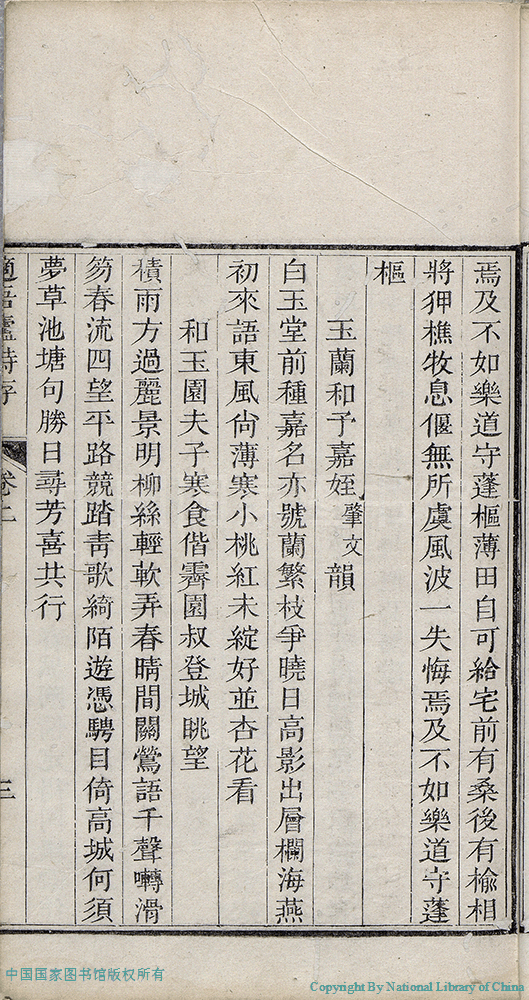 焉及不如樂道守蓬樞薄田自可給宅前有桑後有榆相
將狎樵牧息偃無所虞風波一失悔焉及不如樂道守蓬
樞
玉蘭和予嘉姪肇文韻
白玉堂前種嘉名亦號蘭繁枝爭曉日高影出層欄海燕
初來語東風尙薄寒小桃紅未綻好並杏花看
和玉園夫子寒食偕霽園叔登城眺望
積雨方過麗景明柳絲輕軟弄春晴間關鶯語千聲囀滑
笏春流四望平路競踏靑歌綺陌遊憑騁目倚高城何須
夢草池塘句勝日尋芳喜共行
適吾廬詩存
卷上
三
中国国家图书馆版权所有
Copyright By National Library of China